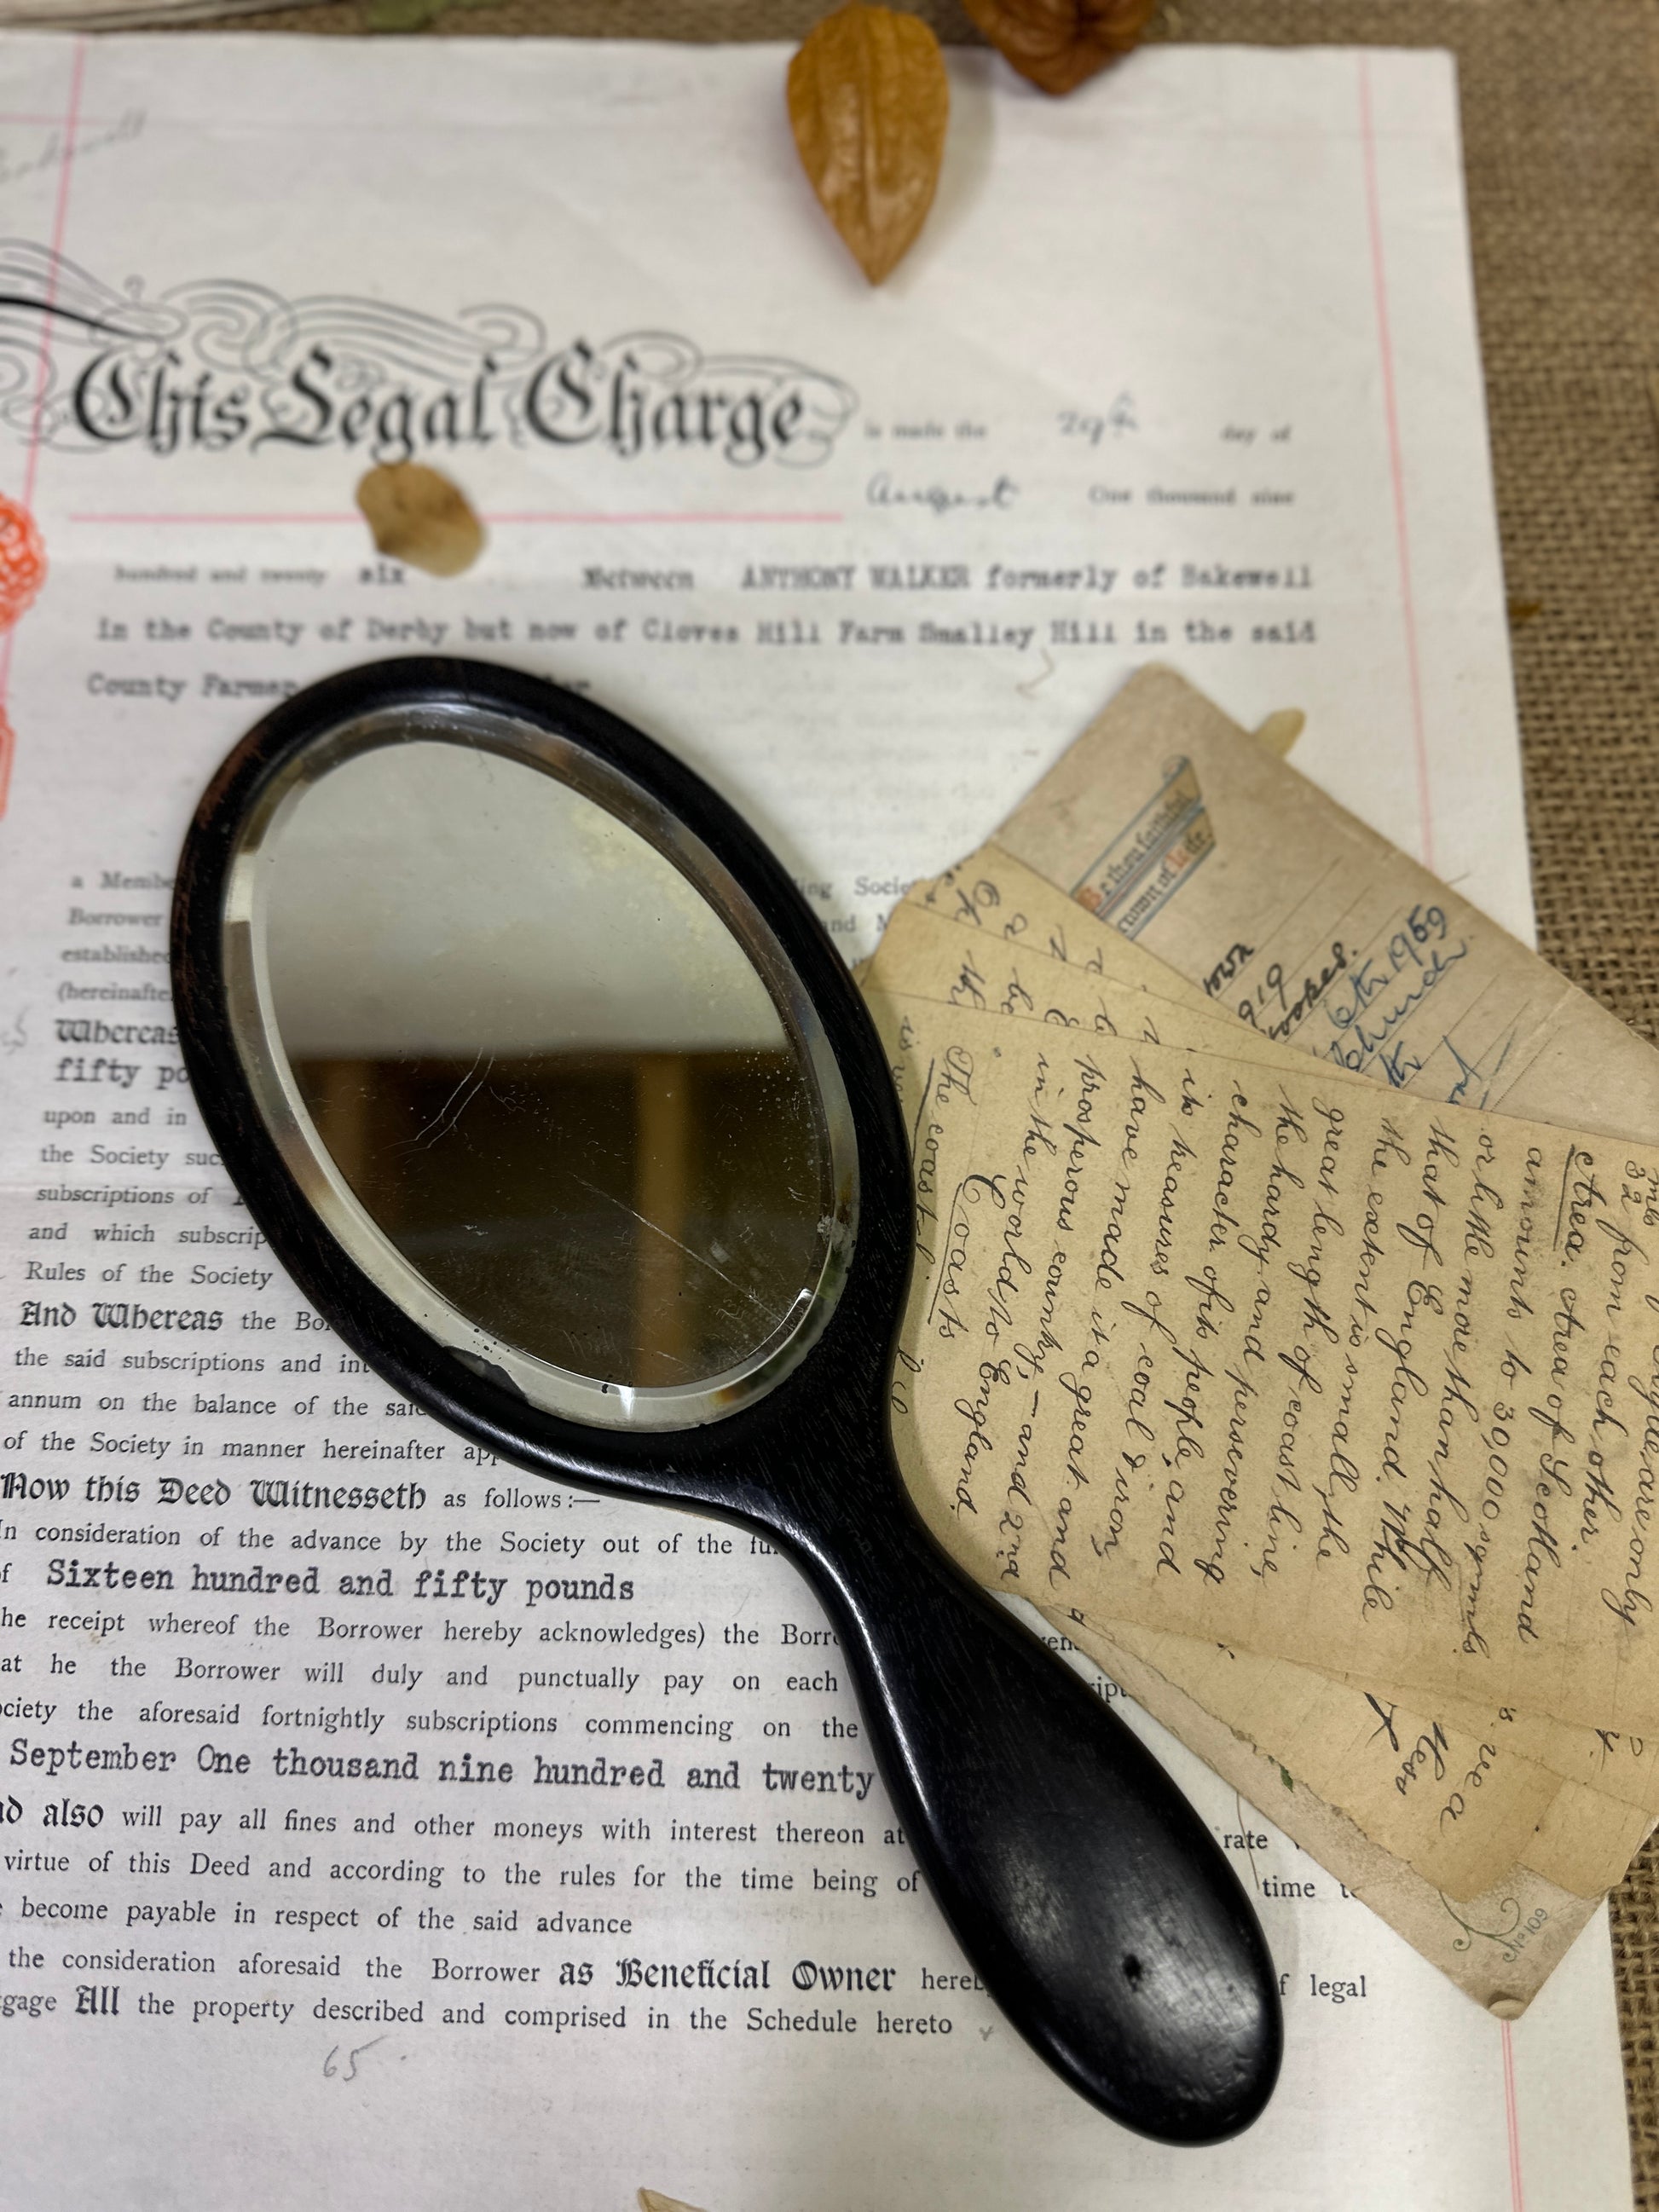 This Legal Charge is made the 29th day of
August One thousand nine
hundred and twenty six Between ANTHONY WALKER formerly of Bakewell
in the County of Derby but now of Cloves Hill Farm Smalley Hill in the said
County Farmer
a Memb
Borrower and
established
(hereinafte
Whereas
fifty po
upon and in
the Society suc
subscriptions of
and which subscrip
Rules of the Society
And Whereas the Bo
the said subscriptions and int
annum on the balance of the said
of the Society in manner hereinafter app
Now this Deed Witnesseth as follows:—
In consideration of the advance by the Society out of the fu
of Sixteen hundred and fifty pounds
he receipt whereof the Borrower hereby acknowledges) the Borr
at he the Borrower will duly and punctually pay on each
ociety the aforesaid fortnightly subscriptions commencing on the
September One thousand nine hundred and twenty
nd also will pay all fines and other moneys with interest thereon at rate
virtue of this Deed and according to the rules for the time being of time t
e become payable in respect of the said advance
the consideration aforesaid the Borrower as Beneficial Owner hereb f legal
gage All the property described and comprised in the Schedule hereto
65
Be thou faithful
crown of life.
1919
6th 1959
from each other.
Area. Area of Scotland
amounts to 30,000 sq mls
or little more than half
that of England. While
the extent is small, the
great length of coast line,
the hardy and persevering
character of its people, and
its treasures of coal & iron,
have made it a great and
prosperous country, — and 2nd
in the world to England.
Coasts
The coast
No 109